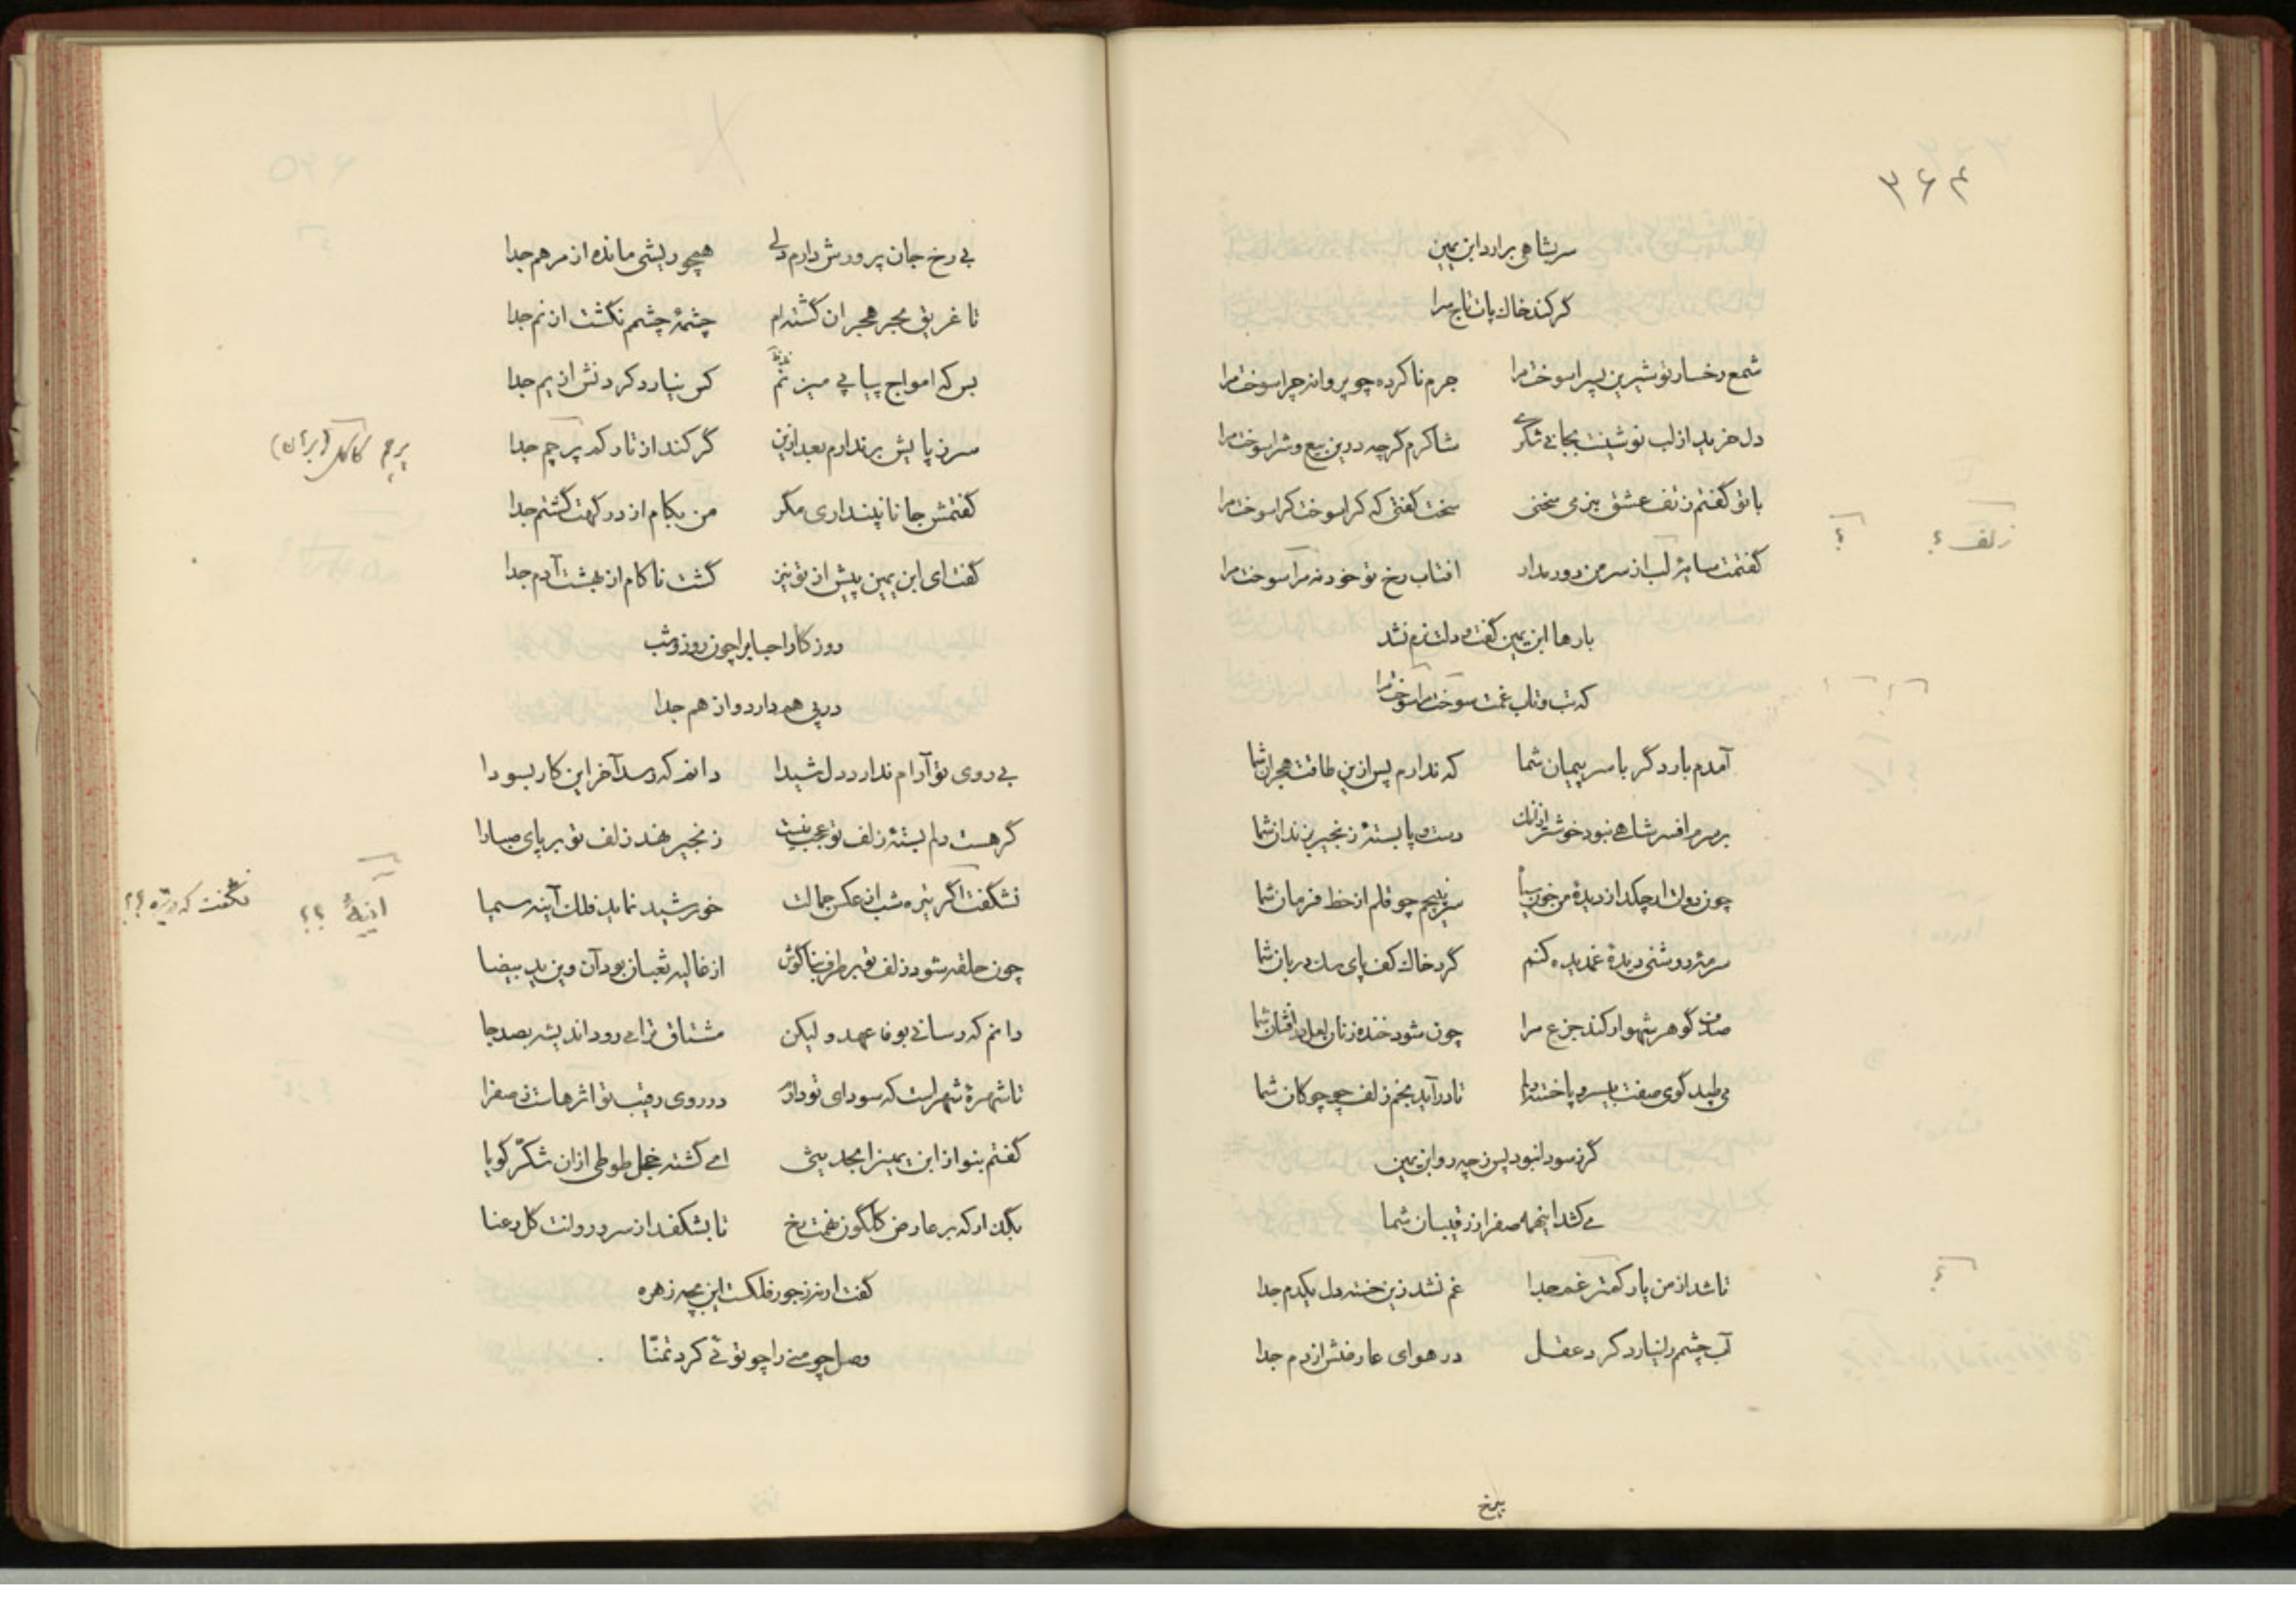 ۳۶۴
سر بشاهی برارد ابن یمین
گر کند خاك پات تاج سرا
شمع رخسار تو شیرین پسرا سوخت مرا جرم ناکرده چو پروانه چرا سوخت مرا
دل خرید از لب نوشینت بجانی شکری شاکرم گرچه درین بیع و شرا سوخت مرا
با تو گفتم ز تف عشق بنرمی سخنی سخت گفتی که کرا سوخت کرا سوخت مرا
زلف ؟ ؟
گفتمت سایۀ لب از سر من دور مدار افتاب رخ تو خود نه مرا سوخت مرا
بارها ابن یمین گفت و دلت نرم نشد
که تب و تاب غمت سوخت مرا سوخت مرا
آمدم بار دگر با سر پیمان شما که ندارم پس ازین طاقت هجران شما
بر سرم افسر شاهی نبود خوشتر ازانك دست و پا بستۀ زنجیر بزندان شما
چون دوات ار چکد از دیدۀ من خون سیاه سر نپیچم چو قلم از خط فرمان شما
سرمۀ روشنی دیدۀ غمدیده کنم گرد خاك کف پای سك دربان شما
صدف گوهر شهوار کند جزع مرا چون شود خنده زنان لعل درافشان شما
می طپد گوی صفت بی سر و پا خسته دلم تا درآید بخم زلف چو چوکان شما
گر ز سودا نبود پس ز چه رو ابن یمین
می کشد اینهمه صفرا ز رقیبان شما
تا شد از من یار کمتر غم جدا غم نشد زین خسته دل یکدم جدا
؟
آب چشم را نیارد کرد عقل در هوای عارضش از دم جدا
بی رخ
بی رخ جان پرورش دارم دلی همچو ریشی مانده از مرهم جدا
تا غریق بحر هجران گشته ام چشمۀ چشمم نگشت از نم جدا
بس که امواج پیاپی میزند کس نیارد کردنش از یم جدا
سر ز پایش برندارم بعد ازین گر کند از تارکم پرچم جدا
پرچم کاکل (برهان)
گفتمش جانا نپنداری مگر من بکام از درگهت گشتم جدا
گفت ای ابن یمین پیش از تو نیز گشت ناکام از بهشت آدم جدا
روزکار احباب را چون روز و شب
در پی هم دارد و از هم جدا
بی روی تو آرام ندارد دل شیدا دانم که رسد آخر این کار بسودا
گر هست دلم بستۀ زلف تو عجب نیست زنجیر نهد زلف تو بر پای صبا را
نشگفت اگر تیره شب از عکس جمالت خورشید نماید فلك آینه سیما
آینۀ ؟؟ نگفت که در تیره ؟؟
چون حلقه شود زلف تو بر طرف بناگوش از غالیه ثعبان بود آن وین ید بیضا
دانم که رسانی بوفا عهد و لیکن مشتاق ترا می رود اندیشه بصد جا
تا شهرۀ شهرست که سودای تو دارم در روی رقیب تو اثرهاست ز صفرا
گفتم بنواز ابن یمین را بحدیثی ای گشته خجل طوطی ازان شکّر گویا
بگذار که بر عارض گلگون نهمت رخ تا بشکفد از سرو روانت گل رعنا
گفت ار نه ز جور فلکست این بچه زهره
وصل چو منی را چو توئی کرد تمنّا